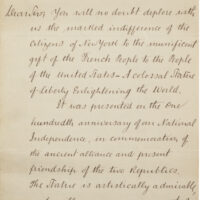 Dear Sir, You will no doubt deplore with
us the marked indifference of the
Citizens of New York to the munificent
gift of the French People to the People
of the United States - A colossal Statue
of Liberty Enlightening the World.
It was presented on the One
hundredth anniversary of our National
Independence, in commemoration of
the ancient alliance and present
friendship of the two Republics.
The Statue is artistically admirably